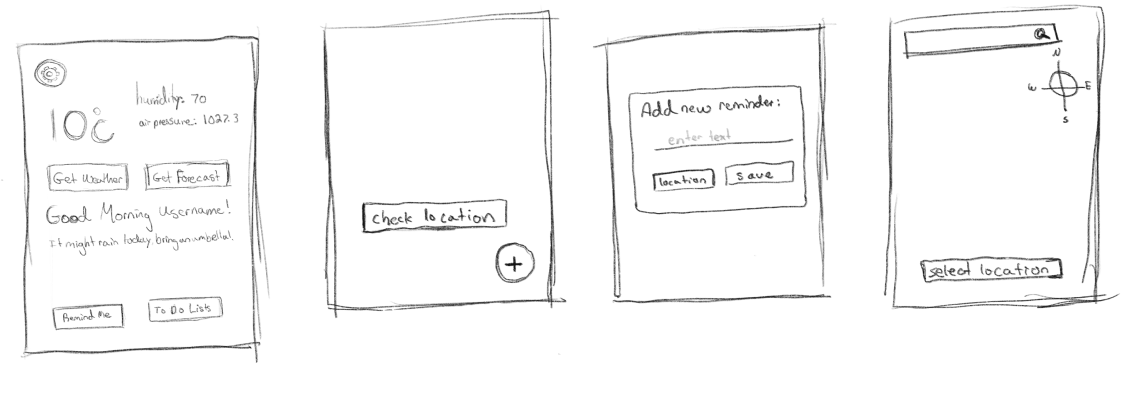 10°C
humidity: 70
air pressure: 1027.3
Get Weather
Get Forecast
Good Morning Username!
It might rain today, bring an umbellal.
Remind Me
To Do Lists
check location
+
Add new reminder:
enter text
location
save
N
W
E
S
select location